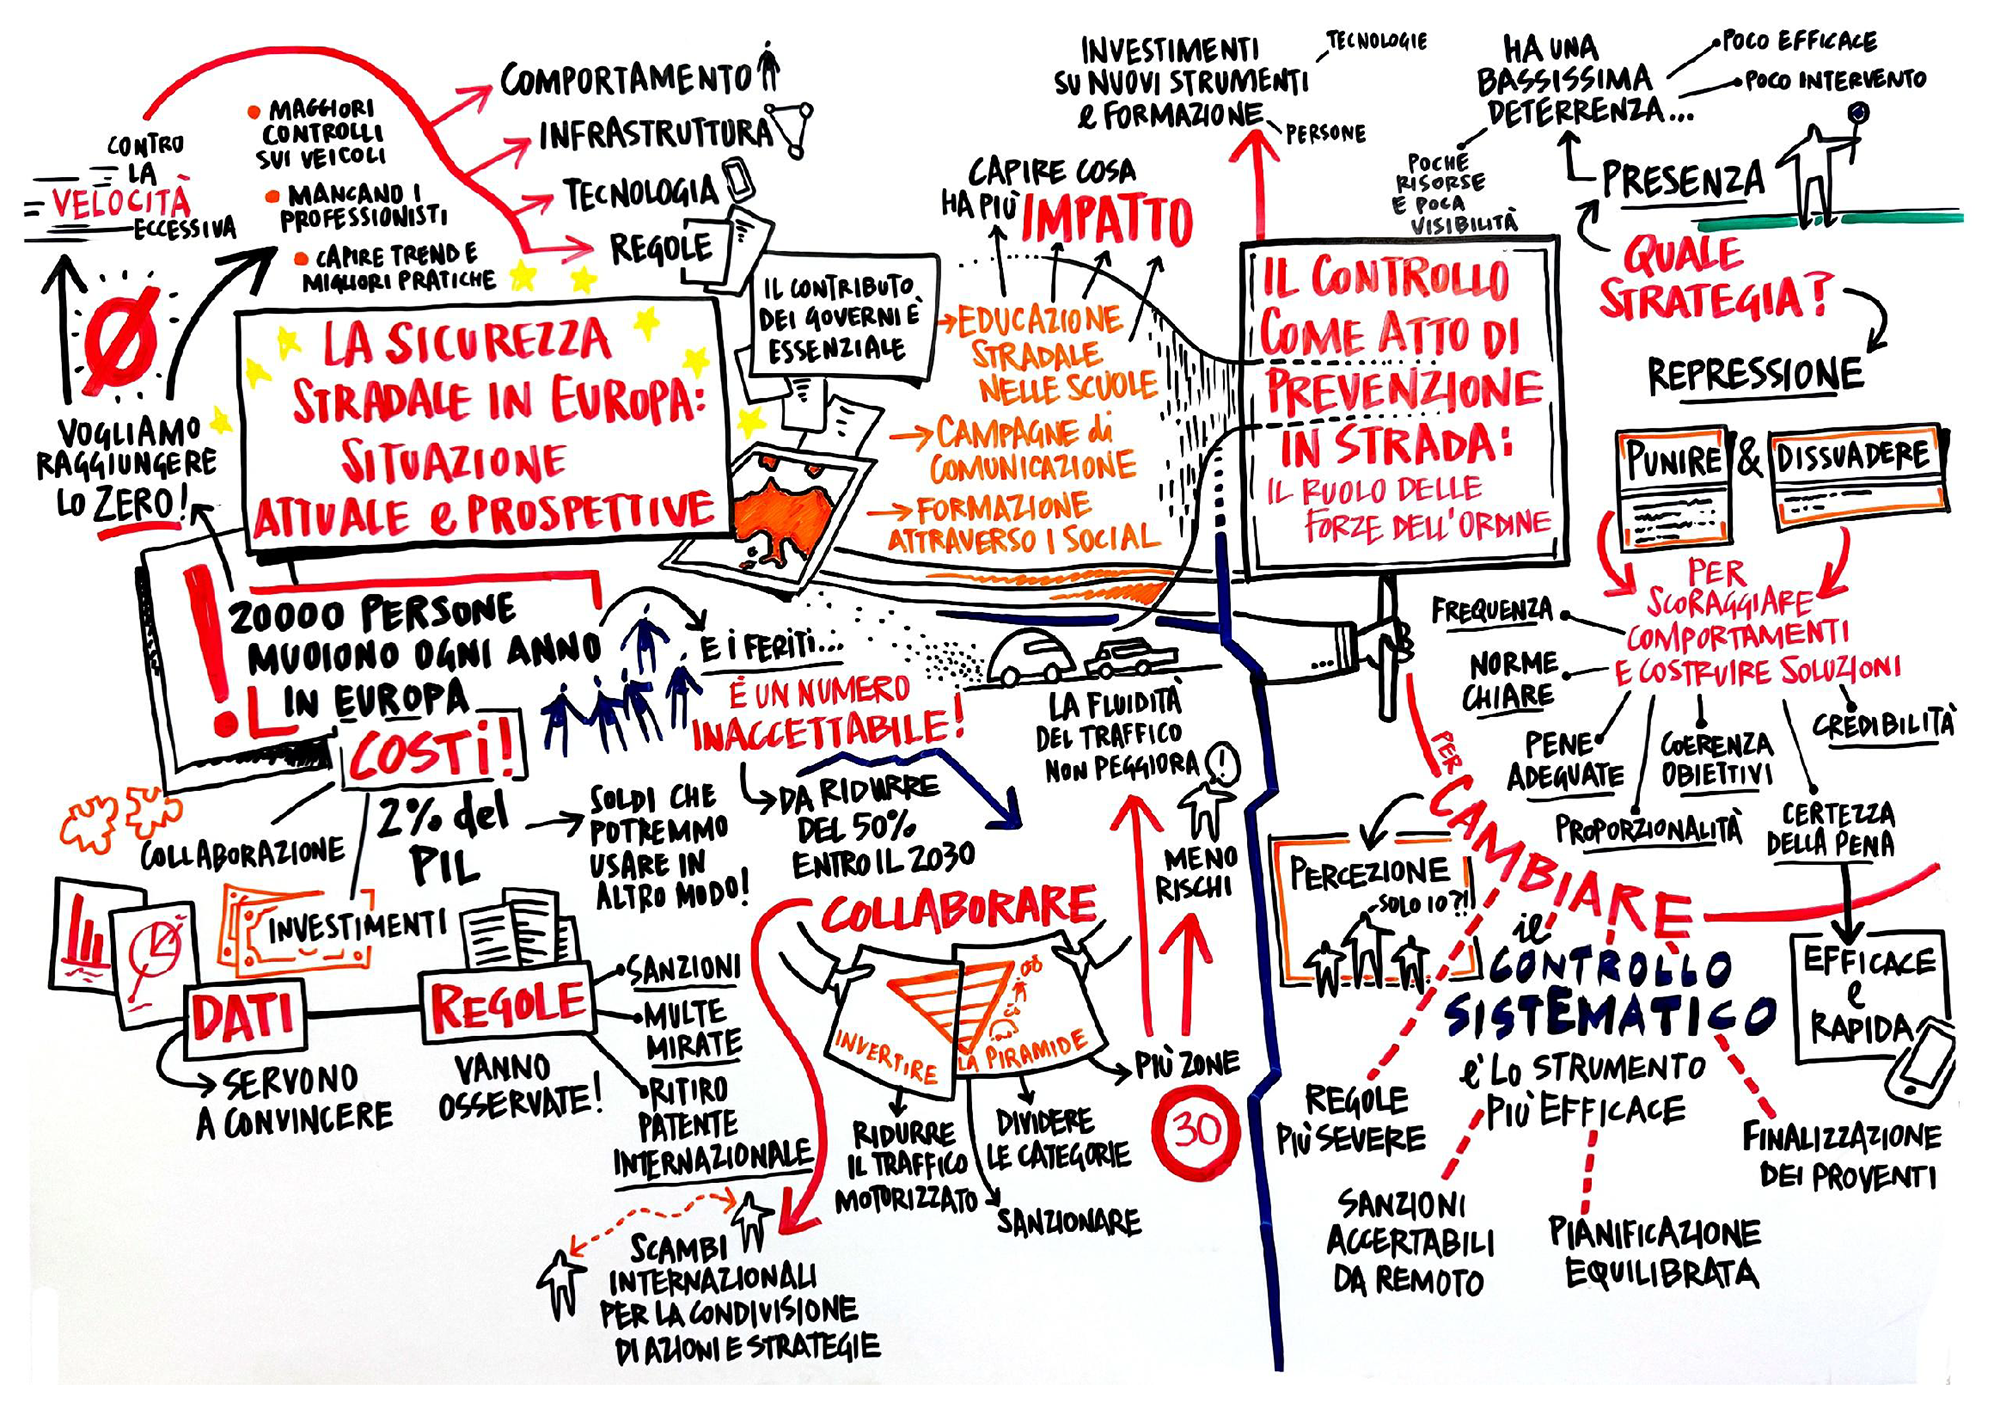 CONTRO
LA
VELOCITÀ
ECCESSIVA
MAGGIORI
CONTROLLI
SUI VEICOLI
MANCANO I
PROFESSIONISTI
CAPIRE TREND E
MIGLIORI PRATICHE
COMPORTAMENTO
INFRASTRUTTURA
TECNOLOGIA
REGOLE
VOGLIAMO
RAGGIUNGERE
LO ZERO!
LA SICUREZZA
STRADALE IN EUROPA:
SITUAZIONE
ATTUALE e PROSPETTIVE
IL CONTRIBUTO
DEI GOVERNI È
ESSENZIALE
EDUCAZIONE
STRADALE
NELLE SCUOLE
CAMPAGNE di
COMUNICAZIONE
FORMAZIONE
ATTRAVERSO I SOCIAL
CAPIRE COSA
HA PIÙ IMPATTO
!
20000 PERSONE
MUOIONO OGNI ANNO
IN EUROPA
E I FERITI...
È UN NUMERO
INACCETTABILE!
DA RIDURRE
DEL 50%
ENTRO IL 2030
COSTI!
2% del
PIL
SOLDI CHE
POTREMMO
USARE IN
ALTRO MODO!
COLLABORAZIONE
INVESTIMENTI
DATI
SERVONO
A CONVINCERE
REGOLE
VANNO
OSSERVATE!
SANZIONI
MULTE
MIRATE
RITIRO
PATENTE
INTERNAZIONALE
COLLABORARE
INVERTIRE
LA PIRAMIDE
RIDURRE
IL TRAFFICO
MOTORIZZATO
DIVIDERE
LE CATEGORIE
SANZIONARE
PIÙ ZONE
30
SCAMBI
INTERNAZIONALI
PER LA CONDIVISIONE
DI AZIONI E STRATEGIE
LA FLUIDITÀ
DEL TRAFFICO
NON PEGGIORA
!
MENO
RISCHI
INVESTIMENTI
SU NUOVI STRUMENTI
e FORMAZIONE
TECNOLOGIE
PERSONE
IL CONTROLLO
COME ATTO DI
PREVENZIONE
IN STRADA:
IL RUOLO DELLE
FORZE DELL'ORDINE
HA UNA
BASSISSIMA
DETERRENZA...
POCO EFFICACE
POCO INTERVENTO
POCHE
RISORSE
E POCA
VISIBILITÀ
PRESENZA
QUALE
STRATEGIA?
REPRESSIONE
PUNIRE & DISSUADERE
PER
SCORAGGIARE
COMPORTAMENTI
E COSTRUIRE SOLUZIONI
FREQUENZA
NORME
CHIARE
PENE
ADEGUATE
PROPORZIONALITÀ
COERENZA
OBIETTIVI
CERTEZZA
DELLA PENA
CREDIBILITÀ
EFFICACE
e
RAPIDA
PER
CAMBIARE
PERCEZIONE
SOLO IO?!!
il
CONTROLLO
SISTEMATICO
e' LO STRUMENTO
PIU' EFFICACE
REGOLE
PIÙ SEVERE
SANZIONI
ACCERTABILI
DA REMOTO
PIANIFICAZIONE
EQUILIBRATA
FINALIZZAZIONE
DEI PROVENTI